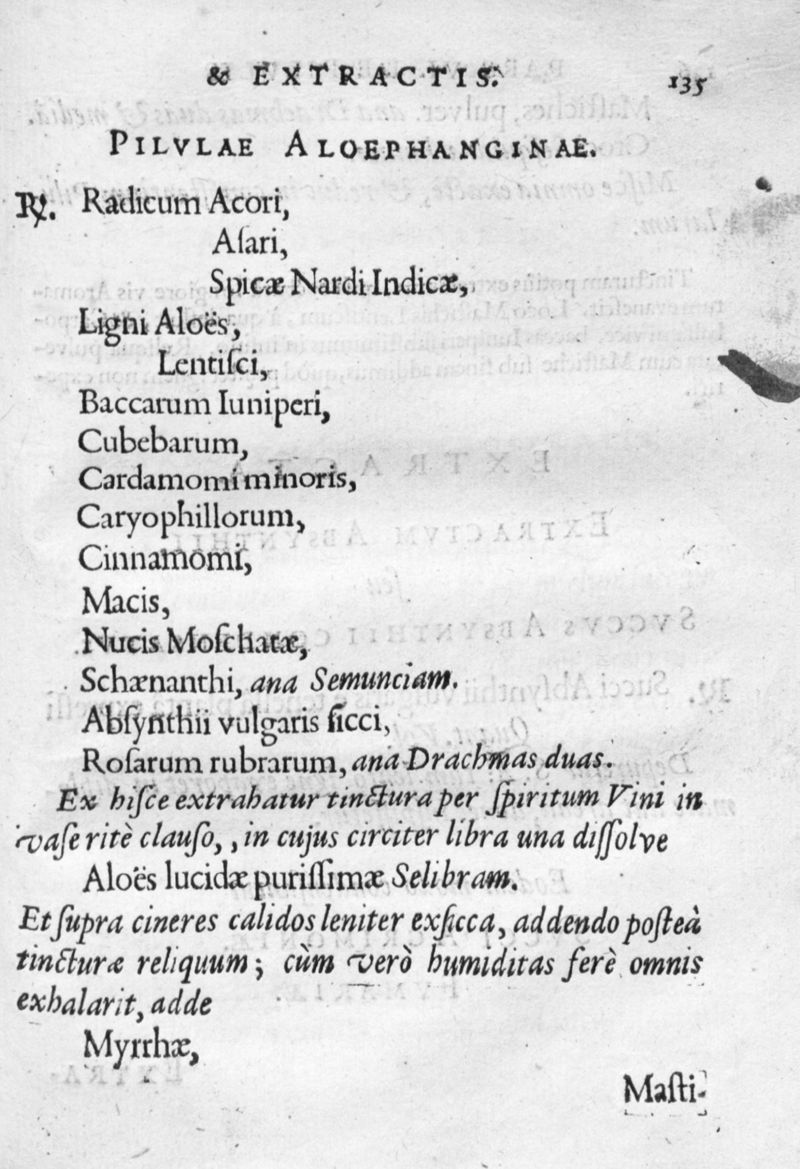 & EXTRACTIS. 135
PILVLAE ALOEPHANGINAE.
℞. Radicum Acori,
Aſari,
Spicæ Nardi Indicæ,
Ligni Aloës,
Lentiſci,
Baccarum Iuniperi,
Cubebarum,
Cardamomi minoris,
Caryophillorum,
Cinnamomi,
Macis,
Nucis Moſchatæ,
Schænanthi, ana Semunciam.
Abſynthii vulgaris ſicci,
Roſarum rubrarum, ana Drachmas duas.
Ex hiſce extrahatur tinctura per ſpiritum Vini in
vaſe ritè clauſo, , in cujus circiter libra una diſſolve
Aloës lucidæ puriſſimæ Selibram.
Et ſupra cineres calidos leniter exſicca, addendo poſteà
tincturæ reliquum; cùm verò humiditas ferè omnis
exhalarit, adde
Myrrhæ,
Maſti-